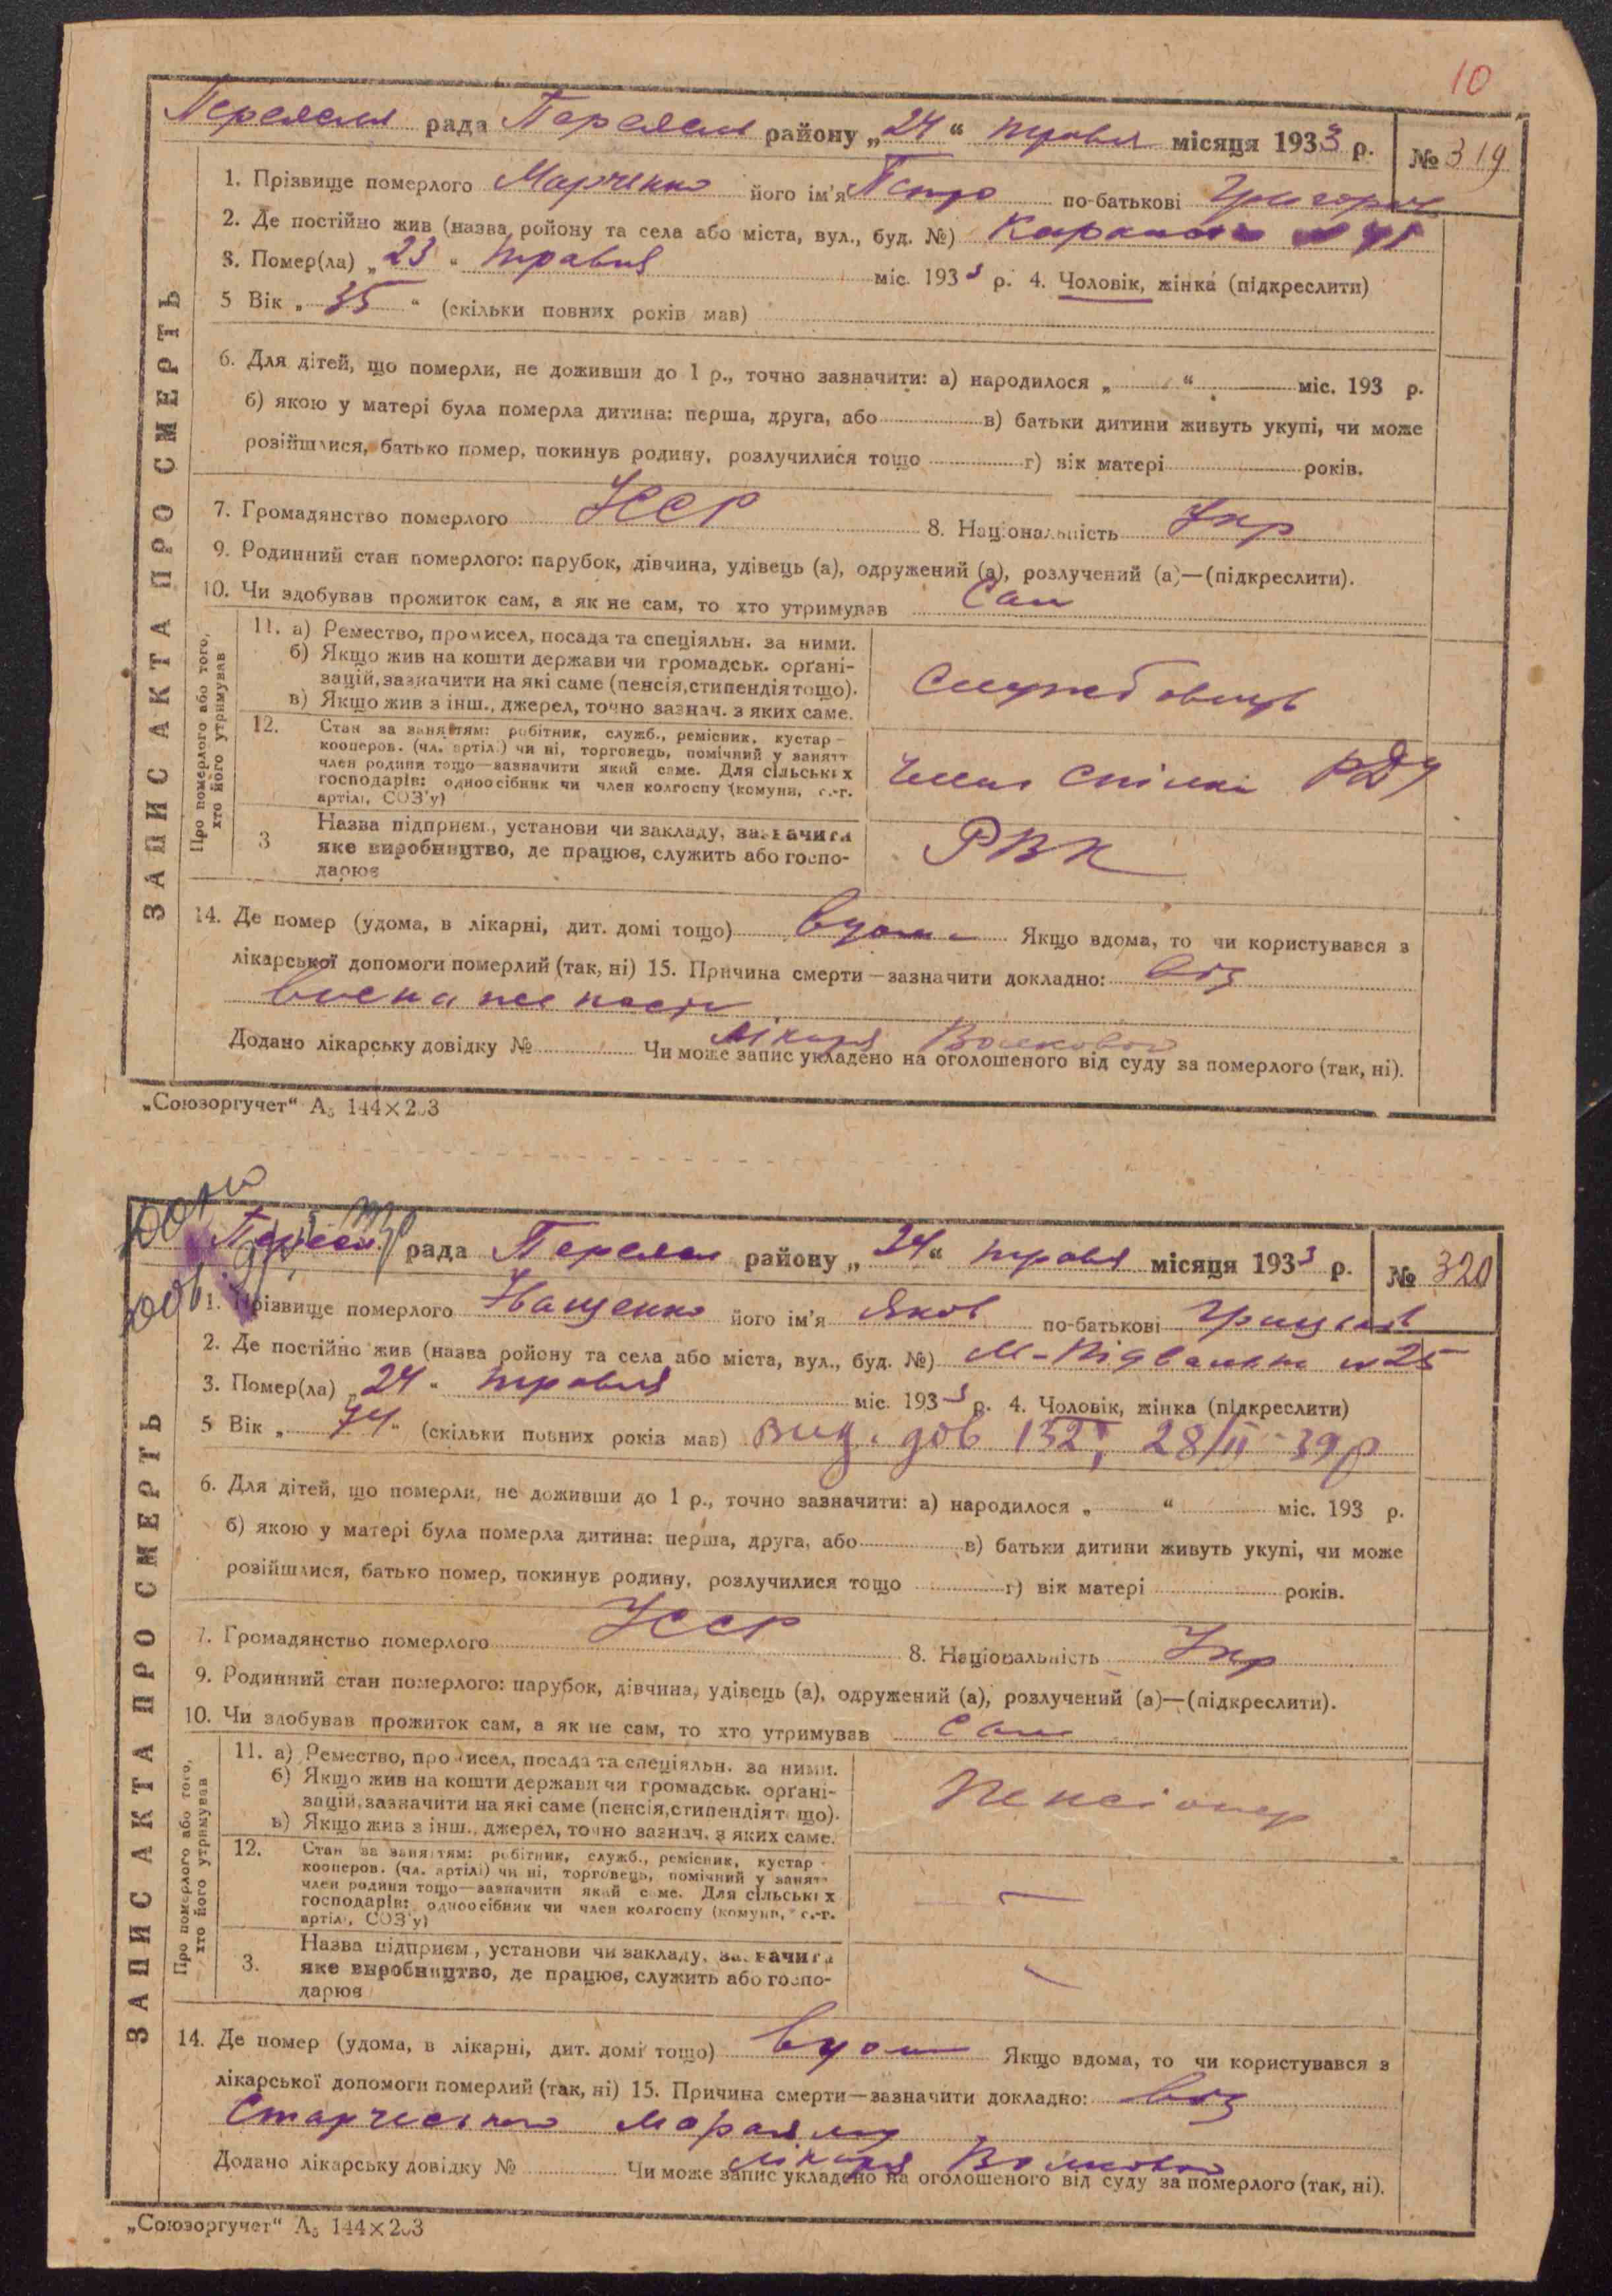 10
Переяслав рада Переяслав району „24“ травня місяця 1933 р. № 319
1. Прізвище померлого Марченко його ім'я Петро по-батькові Григоров
2. Де постійно жив (назва ройону та села або міста, вул., буд. №)
3. Помер(ла) „23“ травня міс. 1933 р. 4. Чоловік, жінка (підкреслити)
5 Вік „35“ (скільки повних років мав)
6. Для дітей, що померли, не доживши до 1 р., точно зазначити: а) народилося „ “ міс. 193 р.
б) якою у матері була померла дитина: перша, друга, або в) батьки дитини живуть укупі, чи може
розійшлися, батько помер, покинув родину, розлучилися тощо г) вік матері років.
7. Громадянство померлого УССР 8. Національність Укр
9. Родинний стан померлого: парубок, дівчина, удівець (а), одружений (а), розлучений (а)—(підкреслити).
10. Чи здобував прожиток сам, а як не сам, то хто утримував Сам
ЗАПИС АКТА ПРО СМЕРТЬ
Про померлого або того, хто його утримував
11. а) Ремество, промисел, посада та спеціяльн. за ними.
б) Якщо жив на кошти держави чи громадськ. орґані-
зацій, зазначити на які саме (пенсія, стипендія тощо).
в) Якщо жив з інш., джерел, точно зазнач. з яких саме.
Службовець
12. Стан за заняттям: робітник, служб., ремісник, кустар -
кооперов. (чл. артілі) чи ні, торговець, помічний у занятт
член родини тощо—зазначити який саме. Для сільських
господарів: одноосібник чи член колгоспу (комуни, с.-г.
артілі, СОЗ'у)
член спілки РДУ
3 Назва підприєм., установи чи закладу, зазначити
яке виробництво, де працює, служить або госпо-
дарює
РВК
14. Де помер (удома, в лікарні, дит. домі тощо) вдома Якщо вдома, то чи користувався з
лікарської допомоги померлий (так, ні) 15. Причина смерти—зазначити докладно: від
Додано лікарську довідку № лікаря Волкової Чи може запис укладено на оголошеного від суду за померлого (так, ні).
„Союзоргучет“ А5 144×203
Переяслав рада Переяслав району „24“ травня місяця 1933 р. № 320
1. Прізвище померлого Іващенко його ім'я Яков по-батькові
2. Де постійно жив (назва ройону та села або міста, вул., буд. №) М-Підвальна № 25
3. Помер(ла) „24“ травня міс. 1933 р. 4. Чоловік, жінка (підкреслити)
5 Вік „74“ (скільки повних років мав) вид. дов 132, 28/II-39р
6. Для дітей, що померли, не доживши до 1 р., точно зазначити: а) народилося „ “ міс. 193 р.
б) якою у матері була померла дитина: перша, друга, або в) батьки дитини живуть укупі, чи може
розійшлися, батько помер, покинув родину, розлучилися тощо г) вік матері років.
7. Громадянство померлого УССР 8. Національність Укр
9. Родинний стан померлого: парубок, дівчина, удівець (а), одружений (а), розлучений (а)—(підкреслити).
10. Чи здобував прожиток сам, а як не сам, то хто утримував Сам
ЗАПИС АКТА ПРО СМЕРТЬ
Про померлого або того, хто його утримував
11. а) Ремество, промисел, посада та спеціяльн. за ними.
б) Якщо жив на кошти держави чи громадськ. орґані-
зацій, зазначити на які саме (пенсія, стипендія тощо).
в) Якщо жив з інш., джерел, точно зазнач. з яких саме.
Пенсіонер
12. Стан за заняттям: робітник, служб., ремісник, кустар -
кооперов. (чл. артілі) чи ні, торговець, помічний у занятт
член родини тощо—зазначити який саме. Для сільських
господарів: одноосібник чи член колгоспу (комуни, с.-г.
артілі, СОЗ'у)
—
3. Назва підприєм., установи чи закладу, зазначити
яке виробництво, де працює, служить або госпо-
дарює
—
14. Де помер (удома, в лікарні, дит. домі тощо) вдома Якщо вдома, то чи користувався з
лікарської допомоги померлий (так, ні) 15. Причина смерти—зазначити докладно: від
Старческого маразму
Додано лікарську довідку № лікаря Волкової Чи може запис укладено на оголошеного від суду за померлого (так, ні).
„Союзоргучет“ А5 144×203